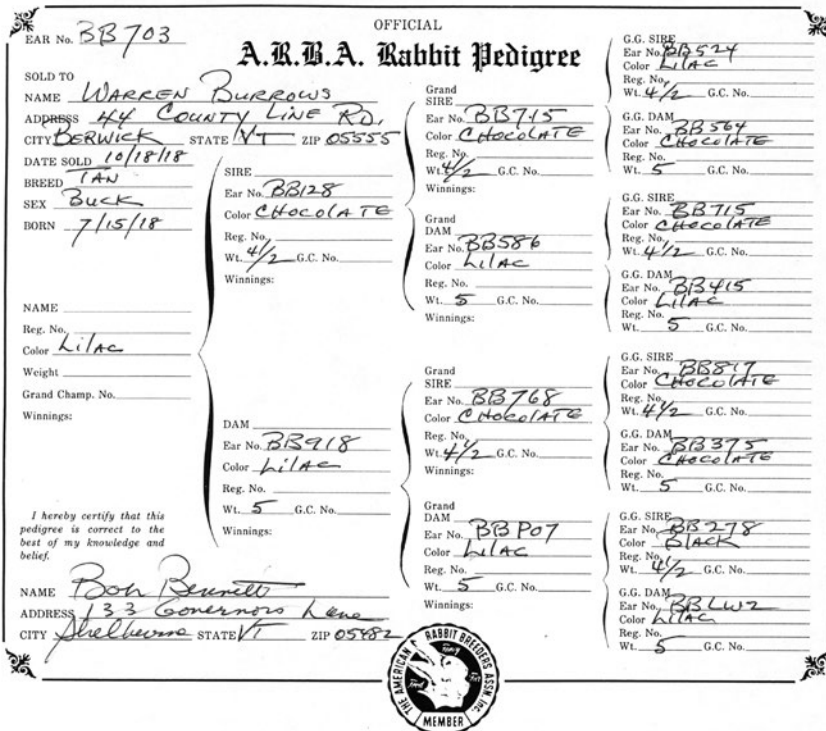 OFFICIAL
A.R.B.A. Rabbit Pedigree
EAR No. BB703
SOLD TO
NAME WARREN BURROWS
ADDRESS 44 COUNTY LINE RD.
CITY BERWICK STATE VT ZIP 05555
DATE SOLD 10/18/18
BREED TAN
SEX BUCK
BORN 7/15/18
NAME
Reg. No.
Color LILAC
Weight
Grand Champ. No.
Winnings:
I hereby certify that this
pedigree is correct to the
best of my knowledge and
belief.
NAME Bob Bennett
ADDRESS 133 Governors Lane
CITY Shelburne STATE VT ZIP 05482
SIRE
Ear No. BB128
Color CHOCOLATE
Reg. No.
Wt. 4 1/2 G.C. No.
Winnings:
DAM
Ear No. BB918
Color LILAC
Reg. No.
Wt. 5 G.C. No.
Winnings:
Grand
SIRE
Ear No. BB715
Color CHOCOLATE
Reg. No.
Wt. 4 1/2 G.C. No.
Winnings:
Grand
DAM
Ear No. BB586
Color LILAC
Reg. No.
Wt. 5 G.C. No.
Winnings:
Grand
SIRE
Ear No. BB768
Color CHOCOLATE
Reg. No.
Wt. 4 1/2 G.C. No.
Winnings:
Grand
DAM
Ear No. BBP07
Color LILAC
Reg. No.
Wt. 5 G.C. No.
Winnings:
G.G. SIRE
Ear No. BB524
Color LILAC
Reg. No.
Wt. 4 1/2 G.C. No.
G.G. DAM
Ear No. BB564
Color CHOCOLATE
Reg. No.
Wt. 5 G.C. No.
G.G. SIRE
Ear No. BB715
Color CHOCOLATE
Reg. No.
Wt. 4 1/2 G.C. No.
G.G. DAM
Ear No. BB415
Color LILAC
Reg. No.
Wt. 5 G.C. No.
G.G. SIRE
Ear No. BB817
Color CHOCOLATE
Reg. No.
Wt. 4 1/2 G.C. No.
G.G. DAM
Ear No. BB375
Color CHOCOLATE
Reg. No.
Wt. 5 G.C. No.
G.G. SIRE
Ear No. BB278
Color BLACK
Reg. No.
Wt. 4 1/2 G.C. No.
G.G. DAM
Ear No. BBLW2
Color LILAC
Reg. No.
Wt. 5 G.C. No.
THE AMERICAN RABBIT BREEDERS ASSN. INC.
Fancy
Food
Fur
MEMBER